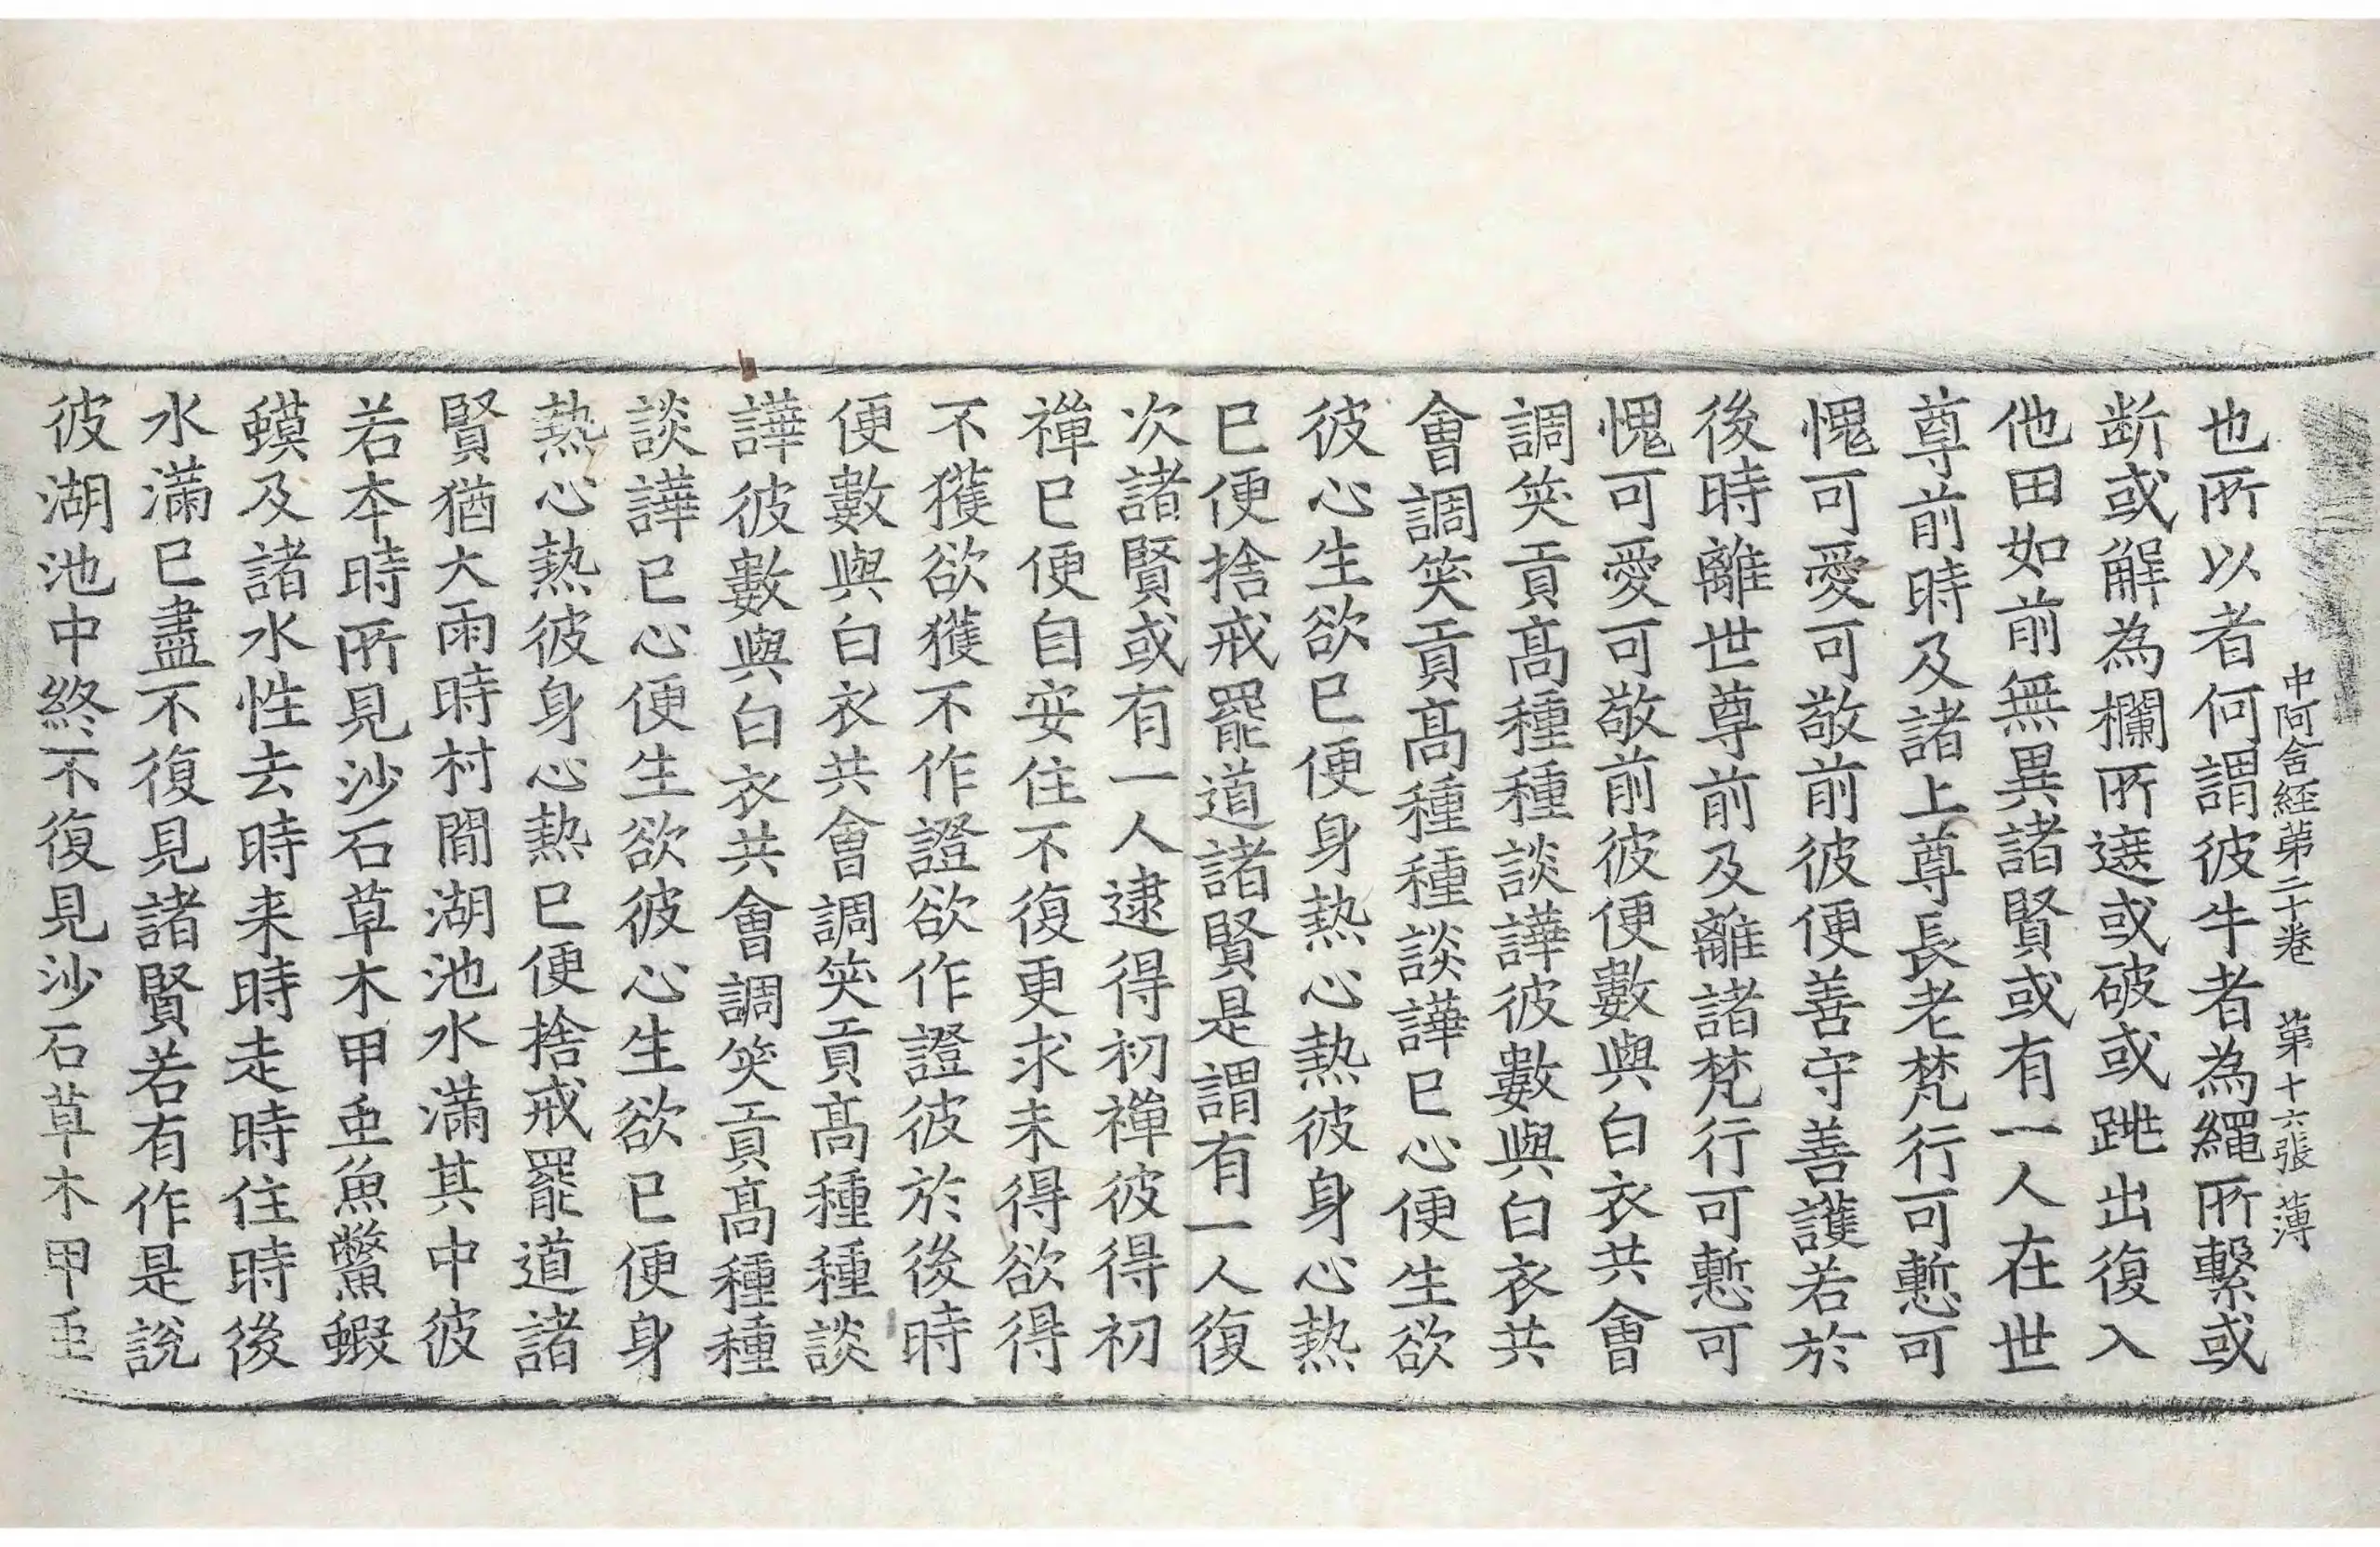 中阿含経第二十卷 第十六張 薄
也所以者何謂彼牛者為繩所繫或
断或解為欄所遮或破或跳出復入
他田如前無異諸賢或有一人在世
尊前時及諸上尊長老梵行可慙可
愧可愛可敬前彼便善守善護若於
後時離世尊前及離諸梵行可慙可
愧可愛可敬前彼便數與白衣共會
調笑貢髙種種談譁彼數與白衣共
會調笑貢髙種種談譁已心便生欲
彼心生欲已便身熱心熱彼身心熱
已便捨戒罷道諸賢是謂有一人復
次諸賢或有一人逮得初禪彼得初
禪已便自安住不復更求未得欲得
不獲欲獲不作證欲作證彼於後時
便數與白衣共會調笑貢髙種種談
譁彼數與白衣共會調笑貢髙種種
談譁已心便生欲彼心生欲已便身
熱心熱彼身心熱已便捨戒罷道諸
賢猶大雨時村間湖池水滿其中彼
若本時所見沙石草木甲䖝魚鱉蝦
蟆及諸水性去時来時走時住時後
水滿已盡不復見諸賢若有作是說
彼湖池中終不復見沙石草木甲䖝